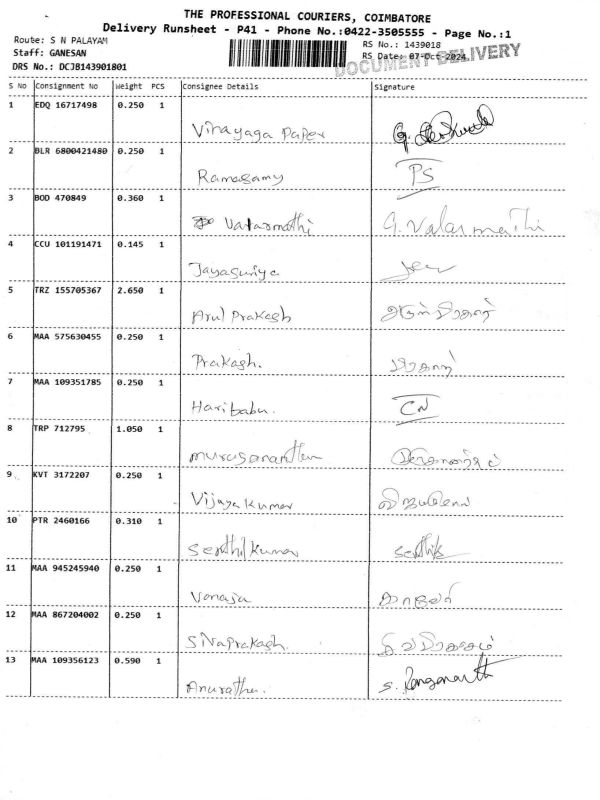 THE PROFESSIONAL COURIERS, COIMBATORE
Delivery Runsheet - P41 - Phone No.:0422-3505555 - Page No.:1
Route: S N PALAYAM
RS No.: 1439018
Staff: GANESAN
RS Date: 07-Oct-2024
DOCUMENT DELIVERY
DRS No.: DCJB143901801
S No Consignment No Weight PCS Consignee Details Signature
1 EDQ 16717498 0.250 1
Vinayaga Paper
2 BLR 6800421480 0.250 1
Ramasamy PS
3 BOD 470849 0.360 1
Valarmathi G. Valarmathi
4 CCU 101191471 0.145 1
Jayasuriya
5 TRZ 155705367 2.650 1
Arul Prakash
6 MAA 575630455 0.250 1
Prakash.
7 MAA 109351785 0.250 1
Haribabu. CN
8 TRP 712795 1.050 1
9 KVT 3172207 0.250 1
Vijayakumar
10 PTR 2460166 0.310 1
Senthilkumar
11 MAA 945245940 0.250 1
Vanaja
12 MAA 867204002 0.250 1
Sivaprakash.
13 MAA 109356123 0.590 1
S. Ranganath